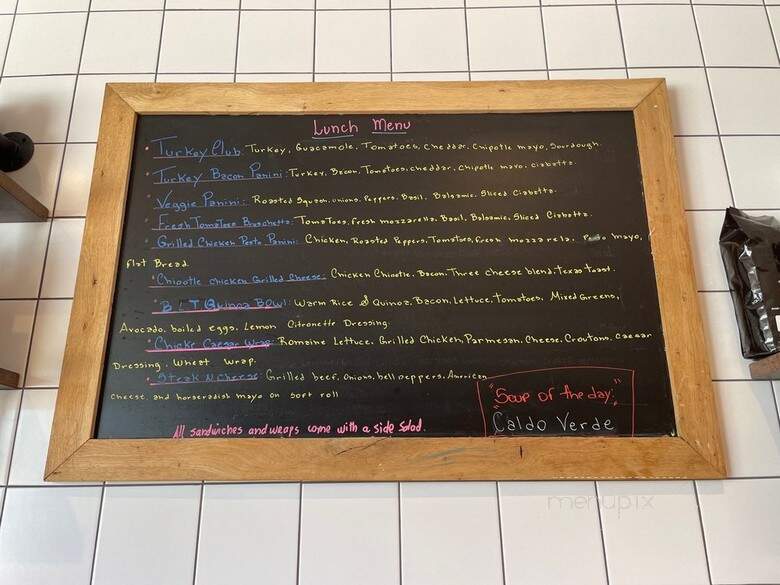 Lunch Menu
Turkey Club: Turkey, Guacamole, Tomatoes, Cheddar, Chipotle mayo, Sourdough.
Turkey Bacon Panini: Turkey, Bacon, Tomatoes, cheddar, Chipotle mayo, ciabatta.
Veggie Panini: Roasted Squash, onions, Peppers, Basil, Balsamic, Sliced Ciabatta.
Fresh Tomatoes Bruschetta: Tomatoes, Fresh mozzarella, Basil, Balsamic, Sliced Ciabatta.
Grilled Chicken Pesto Panini: Chicken, Roasted Peppers, Tomatoes, Fresh mozzarela, mayo,
Flat Bread.
Chipotle chicken Grilled Cheese: Chicken Chipotle, Bacon, Three cheese blend, Texas Toast.
B T Quinoa Bowl: Warm Rice & Quinoa, Bacon, Lettuce, Tomatoes, Mixed Greens,
Avocado, boiled eggs, Lemon Citronette Dressing.
Chicke Caesar Wrap: Romaine Lettuce, Grilled Chicken, Parmesan, Cheese, Croutons, caesar
Dressing, Wheat Wrap.
Steak N Cheese: Grilled beef, Onions, bell peppers, American
cheese, and horseradish mayo on soft roll
All sandwiches and wraps come with a side Salad.
"Soup of the day:"
Caldo Verde
menupix